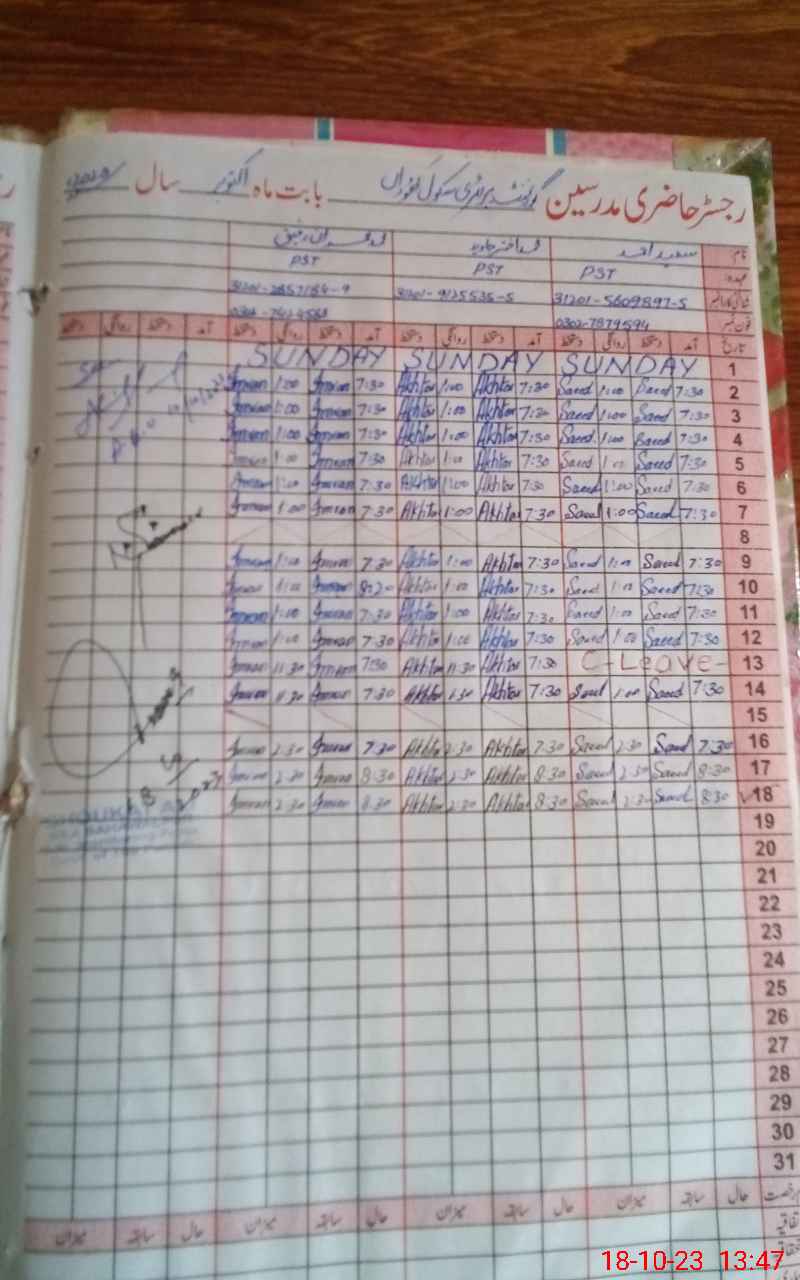 رجسٹر حاضری مدرسین گورنمنٹ پرائمری سکول بابت ماہ اکتوبر سال
نام سعید احمد
عہدہ PST PST PST
31201-5609897-5
فون نمبر 0302-7879594
تاریخ آمد دستخط روانگی دستخط آمد دستخط روانگی دستخط آمد دستخط روانگی دستخط آمد دستخط روانگی دستخط
SUNDAY SUNDAY SUNDAY 1
Imran 1:00 Imran 7:30 Akhtar 1:00 Akhtar 7:30 Saeed 1:00 Saeed 7:30 2
Imran 1:00 Imran 7:30 Akhtar 1:00 Akhtar 7:30 Saeed 1:00 Saeed 7:30 3
Imran 1:00 Imran 7:30 Akhtar 1:00 Akhtar 7:30 Saeed 1:00 Saeed 7:30 4
Imran 1:00 Imran 7:30 Akhtar 1:00 Akhtar 7:30 Saeed 1:00 Saeed 7:30 5
Imran 1:00 Imran 7:30 Akhtar 1:00 Akhtar 7:30 Saeed 1:00 Saeed 7:30 6
Imran 1:00 Imran 7:30 Akhtar 1:00 Akhtar 7:30 Saeed 1:00 Saeed 7:30 7
8
Imran 1:00 Imran 7:30 Akhtar 1:00 Akhtar 7:30 Saeed 1:00 Saeed 7:30 9
Imran 1:00 Imran 8:20 Akhtar 1:00 Akhtar 7:30 Saeed 1:00 Saeed 7:30 10
Imran 1:00 Imran 7:30 Akhtar 1:00 Akhtar 7:30 Saeed 1:00 Saeed 7:30 11
Imran 1:00 Imran 7:30 Akhtar 1:00 Akhtar 7:30 Saeed 1:00 Saeed 7:30 12
Imran 11:30 Imran 7:30 Akhtar 11:30 Akhtar 7:30 C-Leave- 13
Imran Imran 7:30 Akhtar Akhtar 7:30 Saeed 1:00 Saeed 7:30 14
15
Imran 2:30 Imran 7:30 Akhtar 2:30 Akhtar 7:30 Saeed 2:30 Saeed 7:30 16
Imran 2:30 Imran 8:30 Akhtar 2:30 Akhtar 8:30 Saeed 2:30 Saeed 8:30 17
Imran 2:30 Imran 8:30 Akhtar 2:30 Akhtar 8:30 Saeed 2:30 Saeed 8:30 18
19
20
21
22
23
24
25
26
27
28
29
30
31
رخصت حال سابقہ میزان حال سابقہ میزان حال سابقہ میزان حال سابقہ میزان
اتفاقیہ
18-10-23 13:47